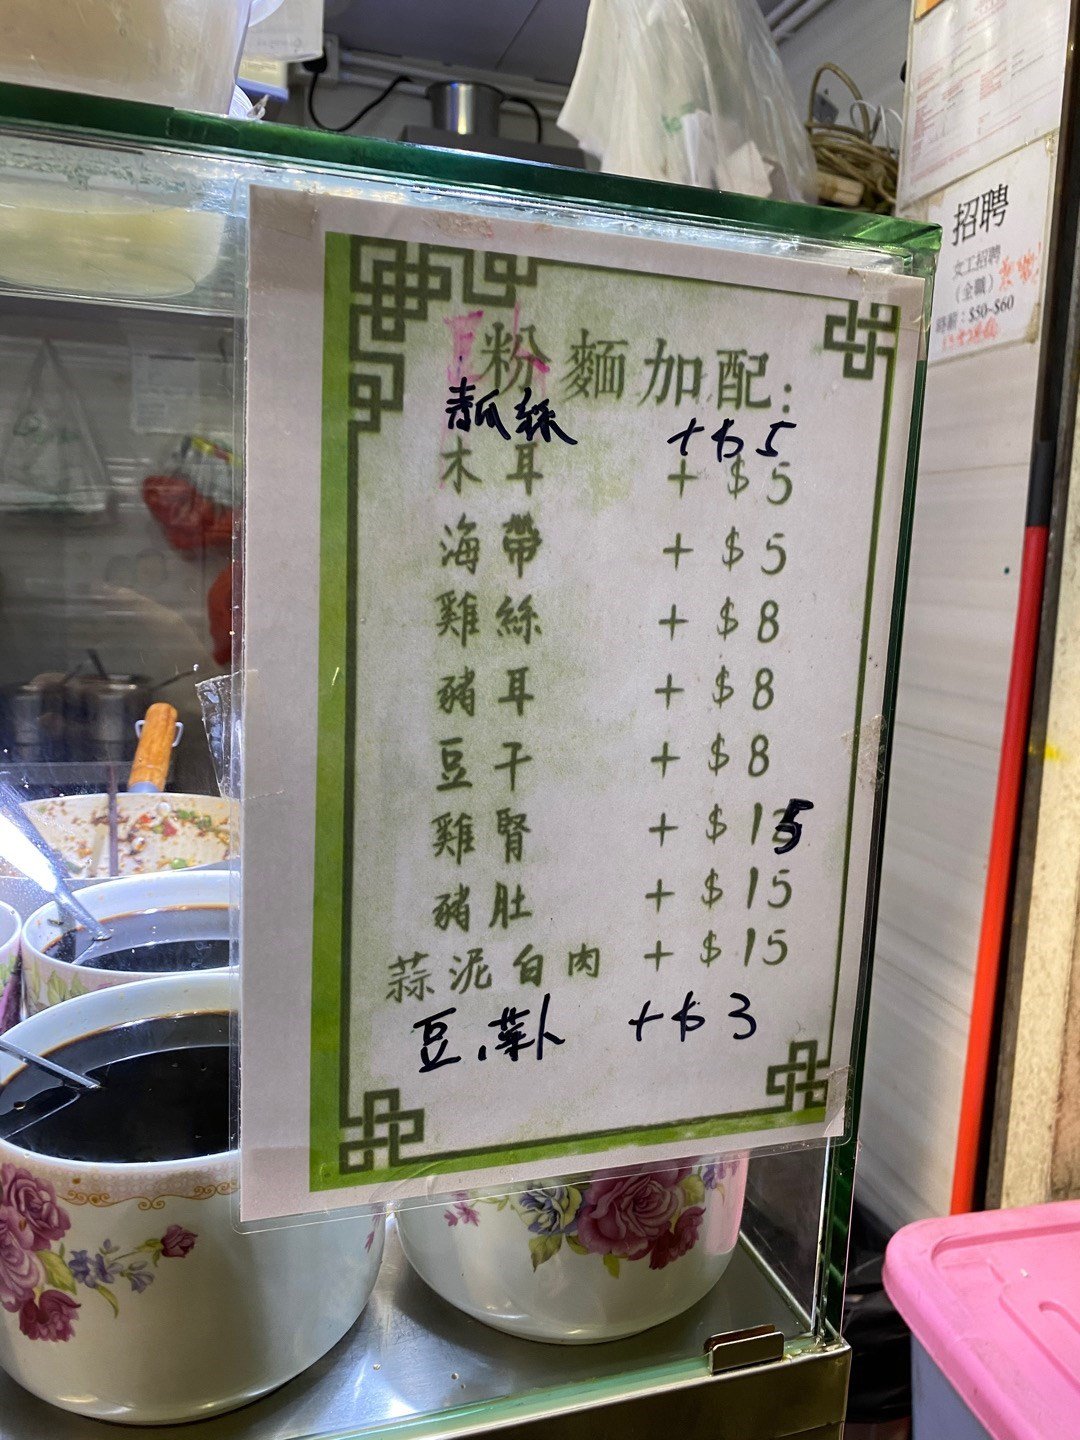 粉麵加配:
青瓜絲 +$5
木耳 +$5
海帶 +$5
雞絲 +$8
豬耳 +$8
豆干 +$8
雞腎 +$15
豬肚 +$15
蒜泥白肉 +$15
豆,菜卜 +$3
招聘
女工招聘
(全職)
時薪:$50-$60